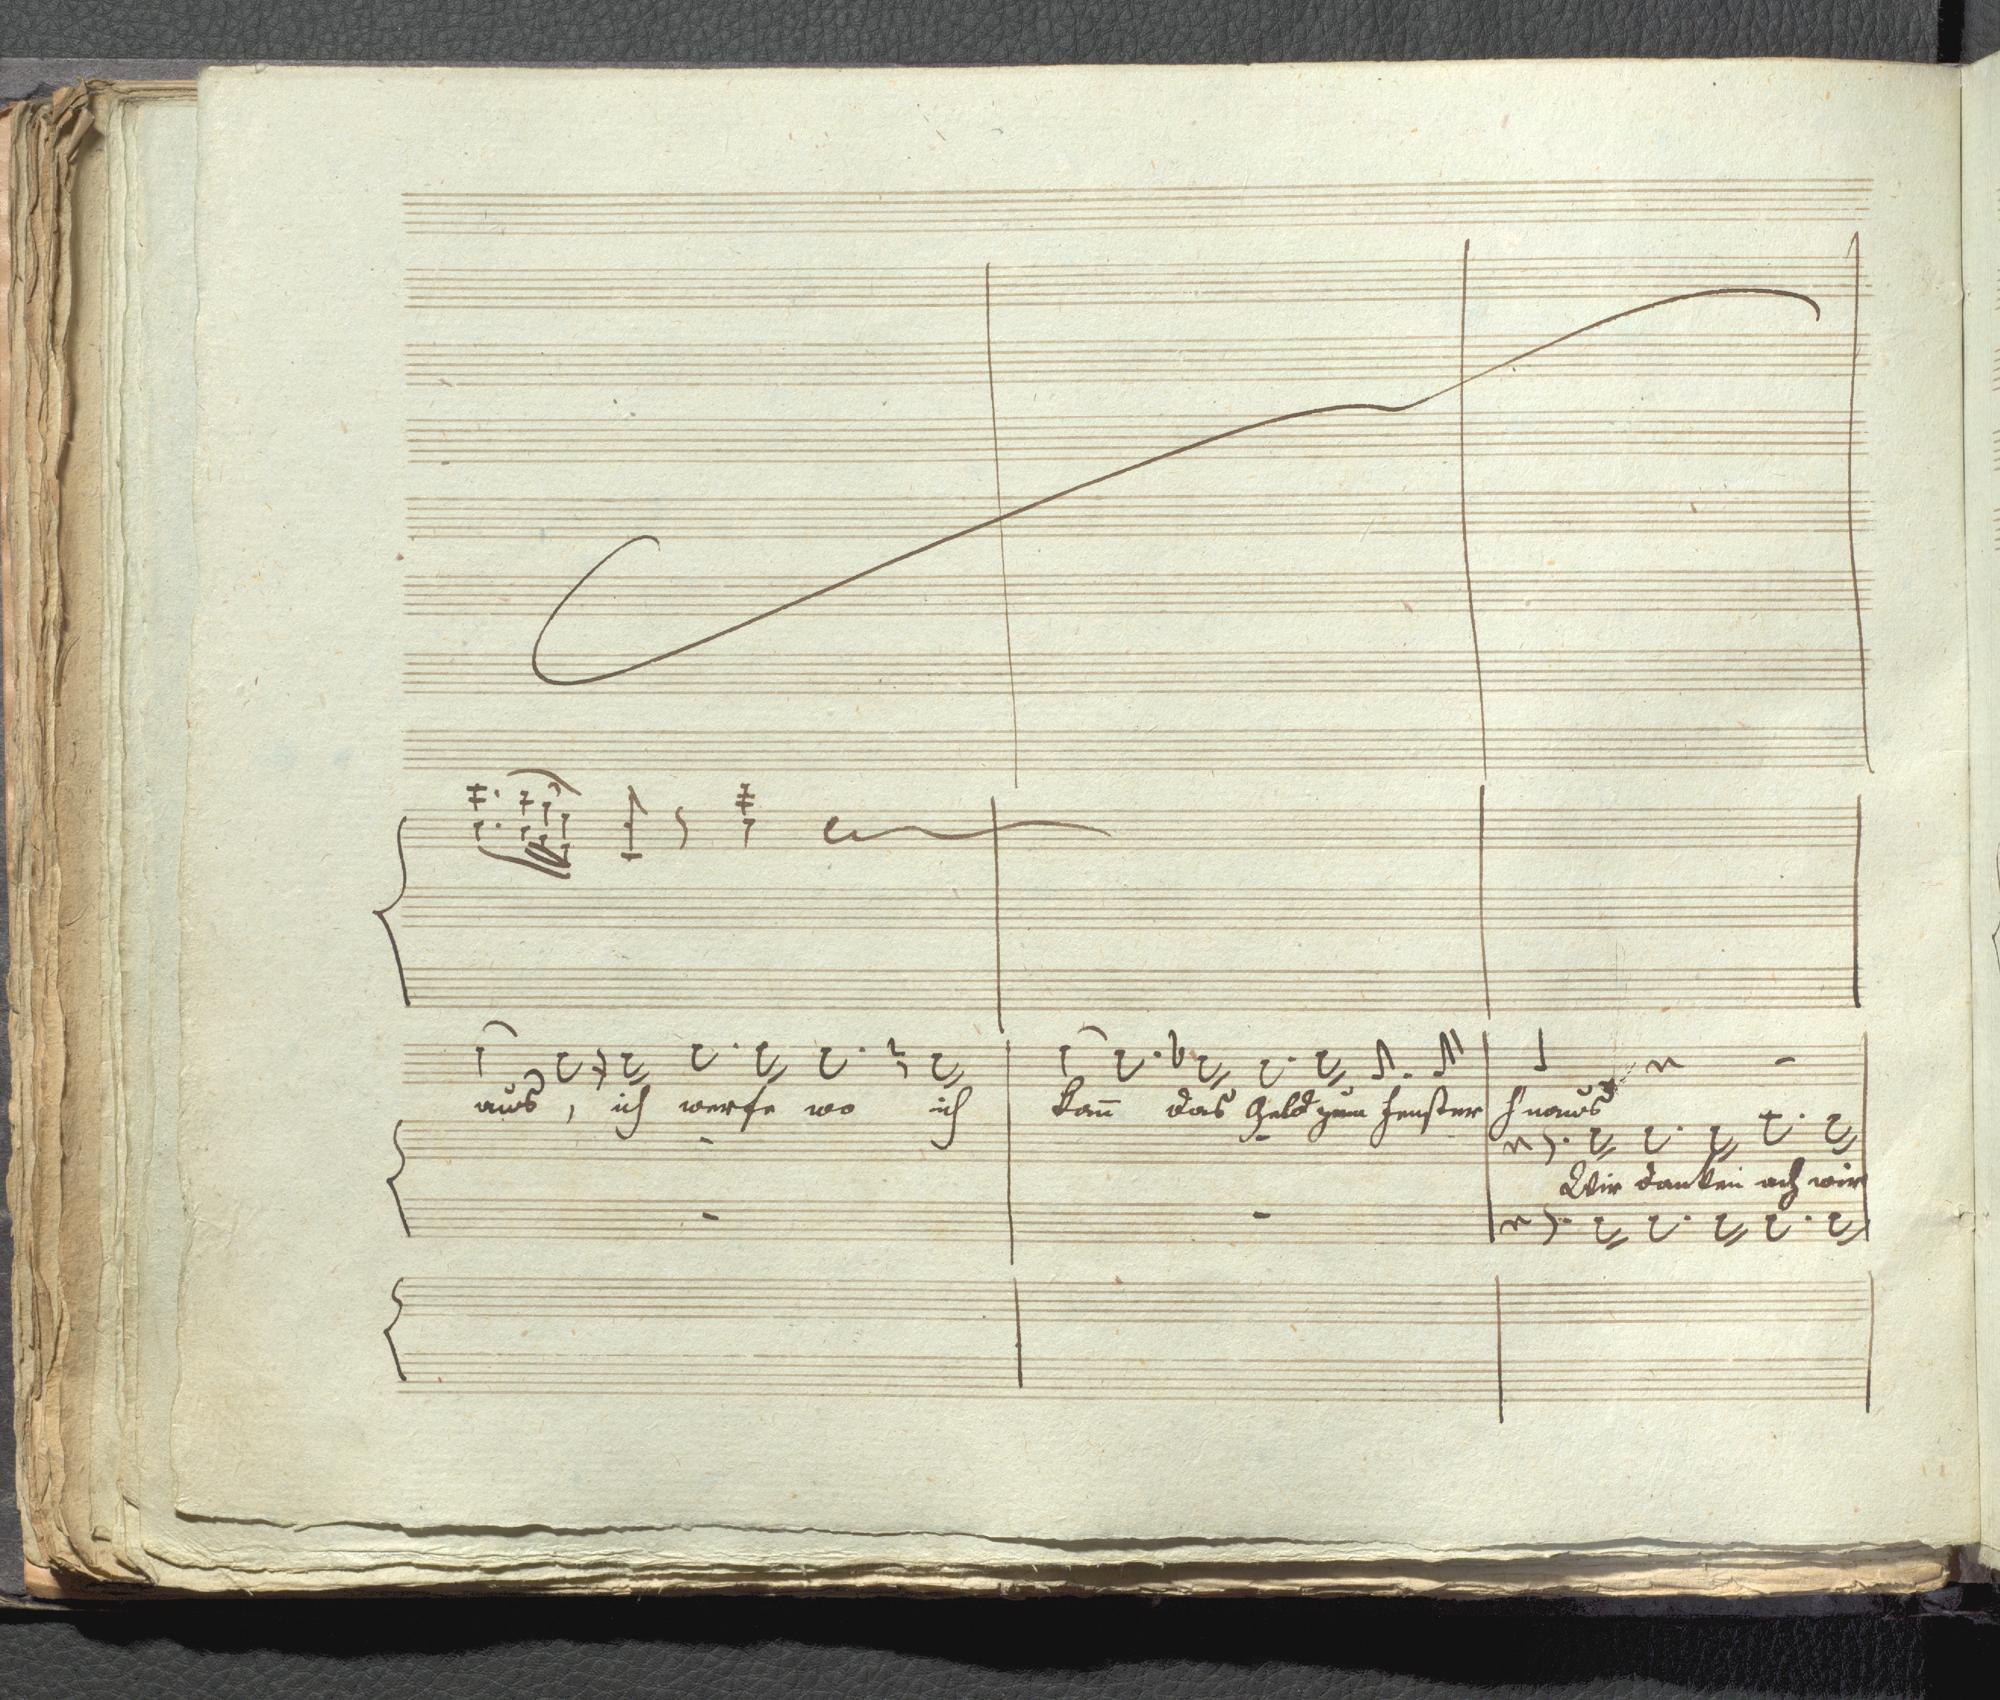 aus, ich werfe wo ich kan̄ das Geld zum Fenster h'naus
Wir danken ach wir